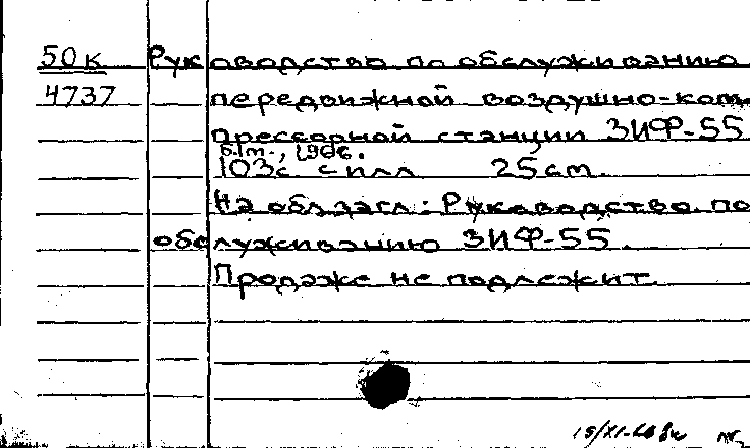 50к Руководство по обслуживанию
4737 передвижной воздушно-ком-
прессорной станции ЗИФ-55
б.м., 1966.
103с. с илл 25см.
На обл. загл: Руководство по
обслуживанию ЗИФ-55.
Продаже не подлежит.